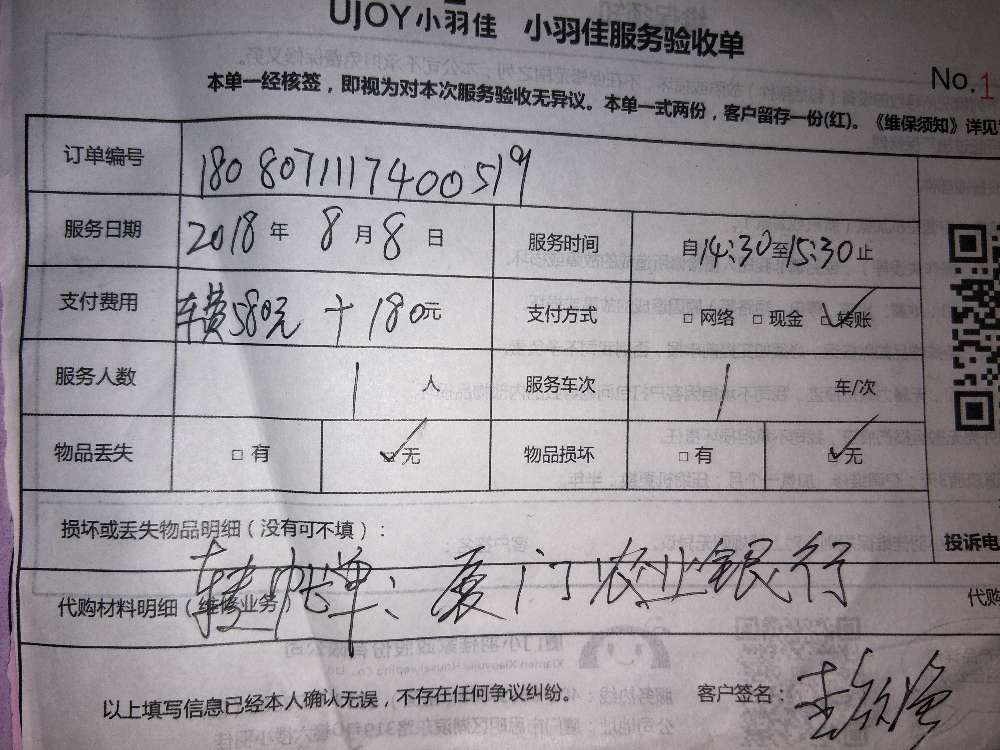 UJOY小羽佳 小羽佳服务验收单
No.1
本单一经核签，即视为对本次服务验收无异议。本单一式两份，客户留存一份(红)。《维保须知》详见
订单编号 1808071117400519
服务日期 2018年8月8日 服务时间 自14:30至15:30止
支付费用 车费580元+180元 支付方式 □网络 □现金 ☑转账
服务人数 1人 服务车次 1车/次
物品丢失 □有 ☑无 物品损坏 □有 ☑无
损坏或丢失物品明细(没有可不填)：
投诉电
转帐单：厦门农业银行
代购材料明细(维修业务)
代购
以上填写信息已经本人确认无误，不存在任何争议纠纷。 客户签名：